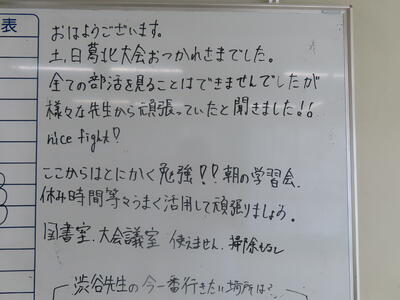 表
おはようございます。
土、日葛北大会おつかれさまでした。
全ての部活を見ることはできませんでしたが
様々な先生から頑張っていたと聞きました!!
nice fight!
ここからはとにかく勉強!!朝の学習会、
休み時間等々うまく活用して頑張りましょう。
図書室、大会議室 使えません、掃除もなし
渋谷先生の今一番行きたい場所は?